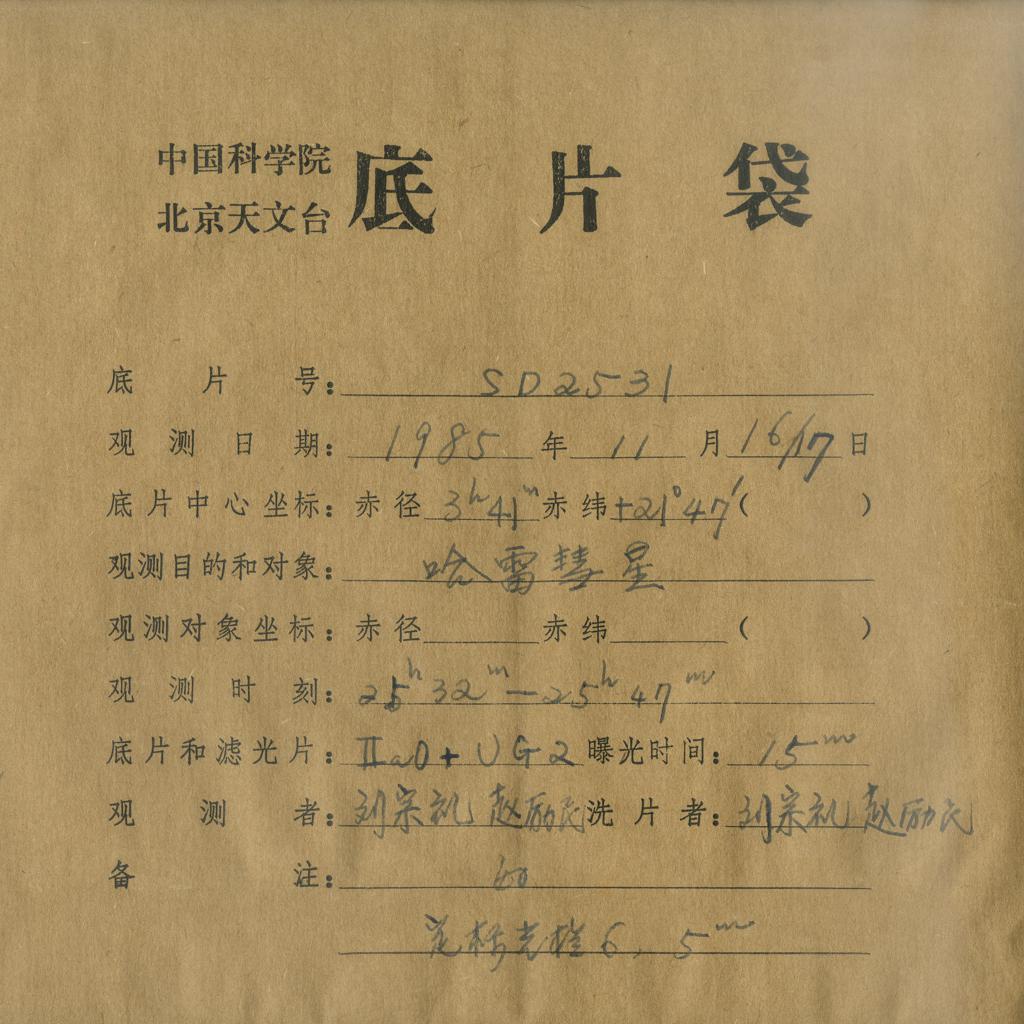 中国科学院
北京天文台 底片袋
底片号: SD2531
观测日期: 1985年11月16/17日
底片中心坐标: 赤径 3ʰ41ᵐ 赤纬 +21°47′( )
观测目的和对象: 哈雷彗星
观测对象坐标: 赤径 赤纬 ( )
观测时刻: 25ʰ32ᵐ—25ʰ47ᵐ
底片和滤光片: IIaO+UG2 曝光时间: 15ᵐ
观测者: 刘宗礼 赵励民 洗片者: 刘宗礼 赵励民
备注:
6, 5ᵐ